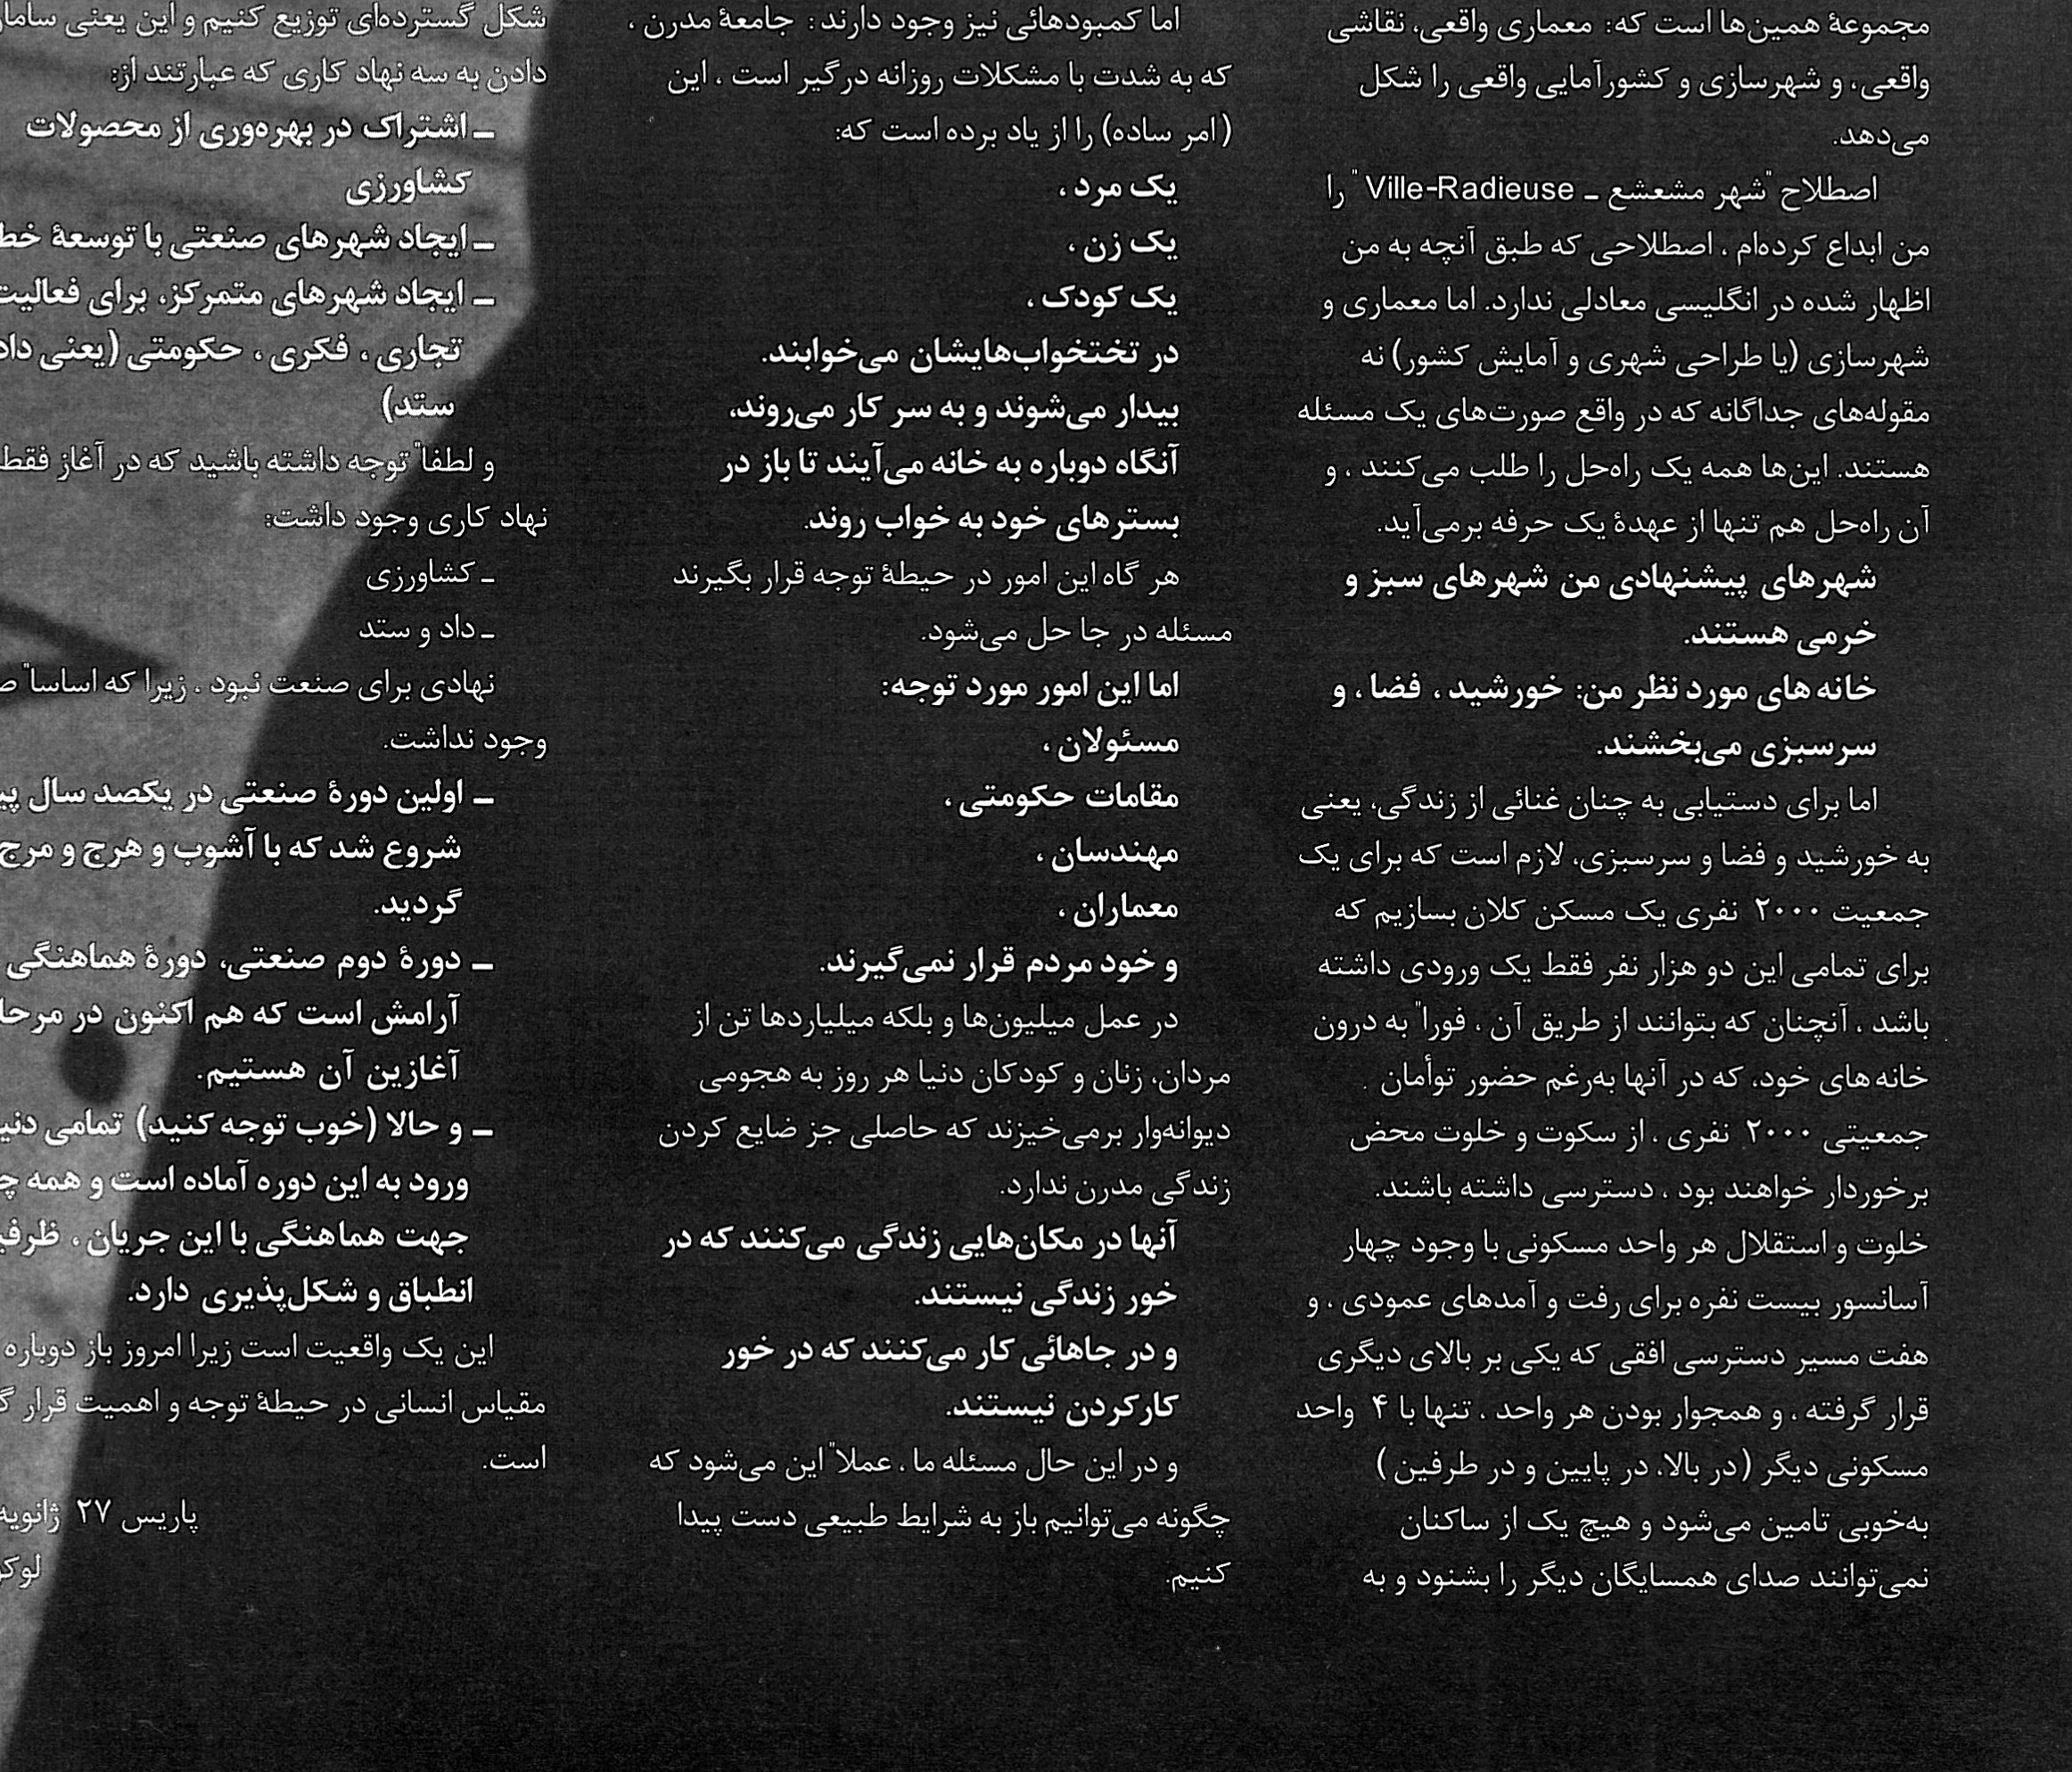 مجموعهٔ همین‌ها است که: معماری واقعی، نقاشی
واقعی، و شهرسازی و کشورآمایی واقعی را شکل
می‌دهد.
اصطلاح "شهر مشعشع ـ Ville-Radieuse" را
من ابداع کرده‌ام ، اصطلاحی که طبق آنچه به من
اظهار شده در انگلیسی معادلی ندارد. اما معماری و
شهرسازی (یا طراحی شهری و آمایش کشور) نه
مقوله‌های جداگانه که در واقع صورت‌های یک مسئله
هستند. این‌ها همه یک راه‌حل را طلب می‌کنند ، و
آن راه‌حل هم تنها از عهدهٔ یک حرفه برمی‌آید.
شهرهای پیشنهادی من شهرهای سبز و
خرمی هستند.
خانه های مورد نظر من: خورشید ، فضا ، و
سرسبزی می‌بخشند.
اما برای دستیابی به چنان غنائی از زندگی، یعنی
به خورشید و فضا و سرسبزی، لازم است که برای یک
جمعیت ۲۰۰۰ نفری یک مسکن کلان بسازیم که
برای تمامی این دو هزار نفر فقط یک ورودی داشته
باشد ، آنچنان که بتوانند از طریق آن ، فورا" به درون
خانه های خود، که در آنها به‌رغم حضور توأمان
جمعیتی ۲۰۰۰ نفری ، از سکوت و خلوت محض
برخوردار خواهند بود ، دسترسی داشته باشند.
خلوت و استقلال هر واحد مسکونی با وجود چهار
آسانسور بیست نفره برای رفت و آمدهای عمودی ، و
هفت مسیر دسترسی افقی که یکی بر بالای دیگری
قرار گرفته ، و همجوار بودن هر واحد ، تنها با ۴ واحد
مسکونی دیگر (در بالا، در پایین و در طرفین )
به‌خوبی تامین می‌شود و هیچ یک از ساکنان
نمی‌توانند صدای همسایگان دیگر را بشنود و به
اما کمبودهائی نیز وجود دارند : جامعهٔ مدرن ،
که به شدت با مشکلات روزانه درگیر است ، این
(امر ساده) را از یاد برده است که:
یک مرد ،
یک زن ،
یک کودک ،
در تختخواب‌هایشان می‌خوابند.
بیدار می‌شوند و به سر کار می‌روند،
آنگاه دوباره به خانه می‌آیند تا باز در
بسترهای خود به خواب روند.
هر گاه این امور در حیطهٔ توجه قرار بگیرند
مسئله در جا حل می‌شود.
اما این امور مورد توجه:
مسئولان ،
مقامات حکومتی ،
مهندسان ،
معماران ،
و خود مردم قرار نمی‌گیرند.
در عمل میلیون‌ها و بلکه میلیاردها تن از
مردان، زنان و کودکان دنیا هر روز به هجومی
دیوانه‌وار برمی‌خیزند که حاصلی جز ضایع کردن
زندگی مدرن ندارد.
آنها در مکان‌هایی زندگی می‌کنند که در
خور زندگی نیستند.
و در جاهائی کار می‌کنند که در خور
کارکردن نیستند.
و در این حال مسئله ما ، عملا" این می‌شود که
چگونه می‌توانیم باز به شرایط طبیعی دست پیدا
کنیم.
شکل گسترده‌ای توزیع کنیم و این یعنی
دادن به سه نهاد کاری که عبارتند از:
ـ اشتراک در بهره‌وری از محصولات
کشاورزی
ـ ایجاد شهرهای صنعتی با توسعهٔ
ـ ایجاد شهرهای متمرکز، برای
تجاری ، فکری ، حکومتی (یعنی
ستد)
و لطفا" توجه داشته باشید که در آغاز فقط
نهاد کاری وجود داشت:
ـ کشاورزی
ـ داد و ستد
نهادی برای صنعت نبود ، زیرا که اساسا"
وجود نداشت.
ـ اولین دورهٔ صنعتی در یکصد سال
شروع شد که با آشوب و هرج و مرج
گردید.
ـ دورهٔ دوم صنعتی، دورهٔ هماهنگی
آرامش است که هم اکنون در
آغازین آن هستیم.
ـ و حالا (خوب توجه کنید) تمامی
ورود به این دوره آماده است و همه
جهت هماهنگی با این جریان ،
انطباق و شکل‌پذیری دارد.
این یک واقعیت است زیرا امروز باز دوباره
مقیاس انسانی در حیطهٔ توجه و اهمیت قرار
است.
پاریس ۲۷ ژانویه